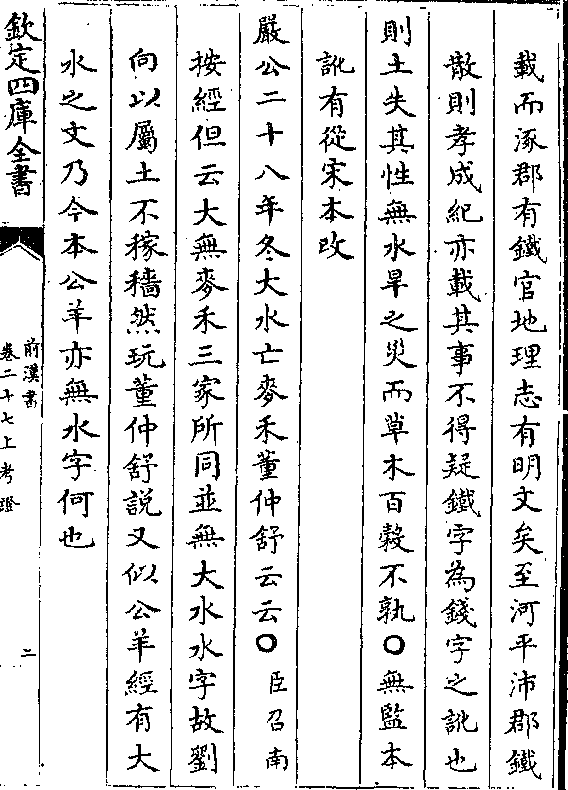 載而涿郡有鐵官地理志有明文矣至河平沛郡鐵
散則孝成紀亦載其事不得疑鐵字為錢字之訛也
則土失其性無水旱之災而草木百穀不孰〇無監本
訛有從宋本改
嚴公二十八年冬大水亡麥禾董仲舒云云〇臣召南
按經但云大無麥禾三家所同並無大水水字故劉
向以屬土不稼穡然玩董仲舒説又似公羊經有大
水之文乃今本公羊亦無水字何也
欽定四庫全書
前漢書
卷二十七上考證
二